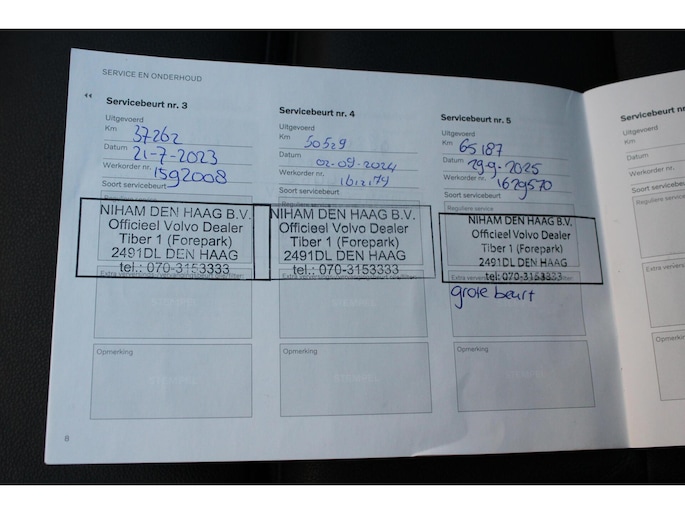 SERVICE EN ONDERHOUD
Servicebeurt nr. 3
Uitgevoerd
Km 37262
Datum 21-7-2023
Werkorder nr. 1592008
Soort servicebeurt
Reguliere service
NIHAM DEN HAAG B.V.
Officieel Volvo Dealer
Tiber 1 (Forepark)
2491DL DEN HAAG
tel.: 070-3153333
Opmerking
8
Servicebeurt nr. 4
Uitgevoerd
Km 50529
Datum 02-09-2024
Werkorder nr.
Soort servicebeurt
Reguliere service
NIHAM DEN HAAG B.V.
Officieel Volvo Dealer
Tiber 1 (Forepark)
2491DL DEN HAAG
tel.: 070-3153333
Opmerking
STEMPEL
Servicebeurt nr. 5
Uitgevoerd
Km 65187
Datum 29-9-2025
Werkorder nr. 1629570
Soort servicebeurt
Reguliere service
NIHAM DEN HAAG B.V.
Officieel Volvo Dealer
Tiber 1 (Forepark)
2491DL DEN HAAG
tel.: 070-3153333
grote beurt
Opmerking
Servicebeurt nr.
Uitgevoerd
Km
Datum
Werkorder nr.
Soort servicebeurt
Reguliere service
Extra
Opmerking